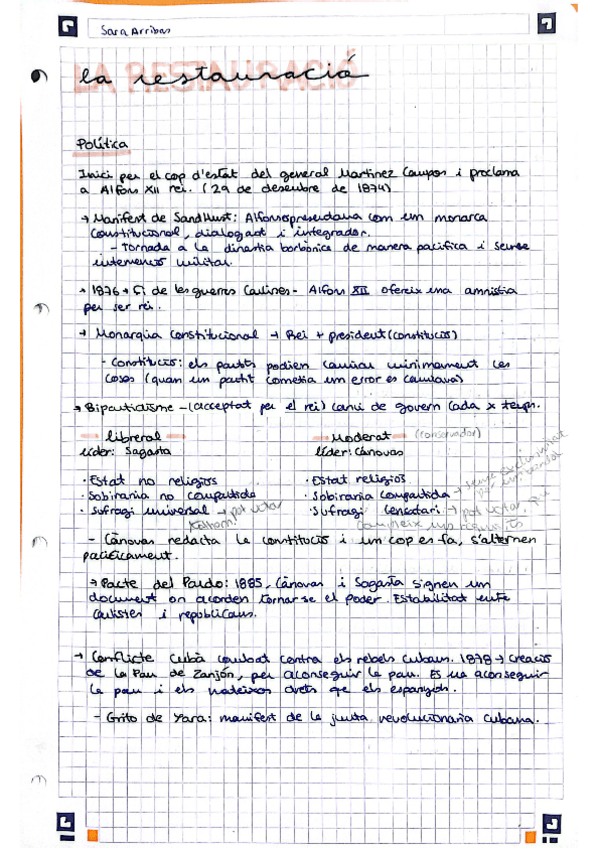 Sara Arribas
LA RESTAURACIÓ
la restauració
Política
Inici per el cop d'estat del general Martínez Campos i proclama
a Alfons XII rei. (29 de desembre de 1874)
→ Manifest de Sandhurst: Alfons es presentava com un monarca
constitucional, dialogant i integrador.
- Tornada a la dinastia borbònica de manera pacífica i sense
intervenció militar.
→ 1876 → Fi de les guerres Carlines - Alfons XII ofereix una amnistia
per ser rei.
→ Monarquia constitucional → Rei + president (constitució)
- Constitució: els partits podien canviar mínimament les
coses (quan un partit cometia un error es canviava)
→ Bipartidisme - (acceptat per el rei) canvi de govern cada x temps.
libreral
líder: Sagasta
· Estat no religiós
· Sobirania no compartida
· Sufragi universal → pot votar
tothom!
Moderat (conservador)
líder: Cánovas
· Estat religiós
· Sobirania compartida →
· Sufragi censatari → pot votar, qui
compleix uns requisits
- Cánovas redacta la constitució i un cop es fa, s'alternen
pacíficament.
→ Pacte del Pardo: 1885, Cánovas i Sagasta signen un
document on acorden tornar-se el poder. Estabilitat entre
carlistes i republicans.
→ Conflicte Cubà combat contra els rebels cubans. 1878 → Creació
de la Pau de Zanjón, per aconseguir la pau. Es va aconseguir
la pau i els mateixos drets que els espanyols.
- Grito de Yara: manifest de la junta revolucionaria cubana.